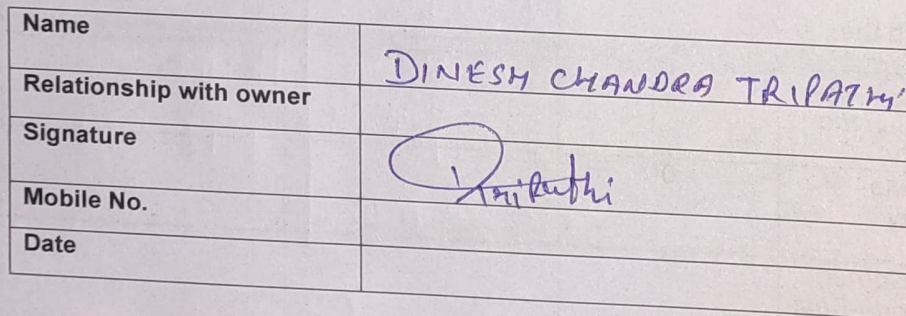 Name DINESH CHANDRA TRIPATHI
Relationship with owner
Signature Tripathi
Mobile No.
Date